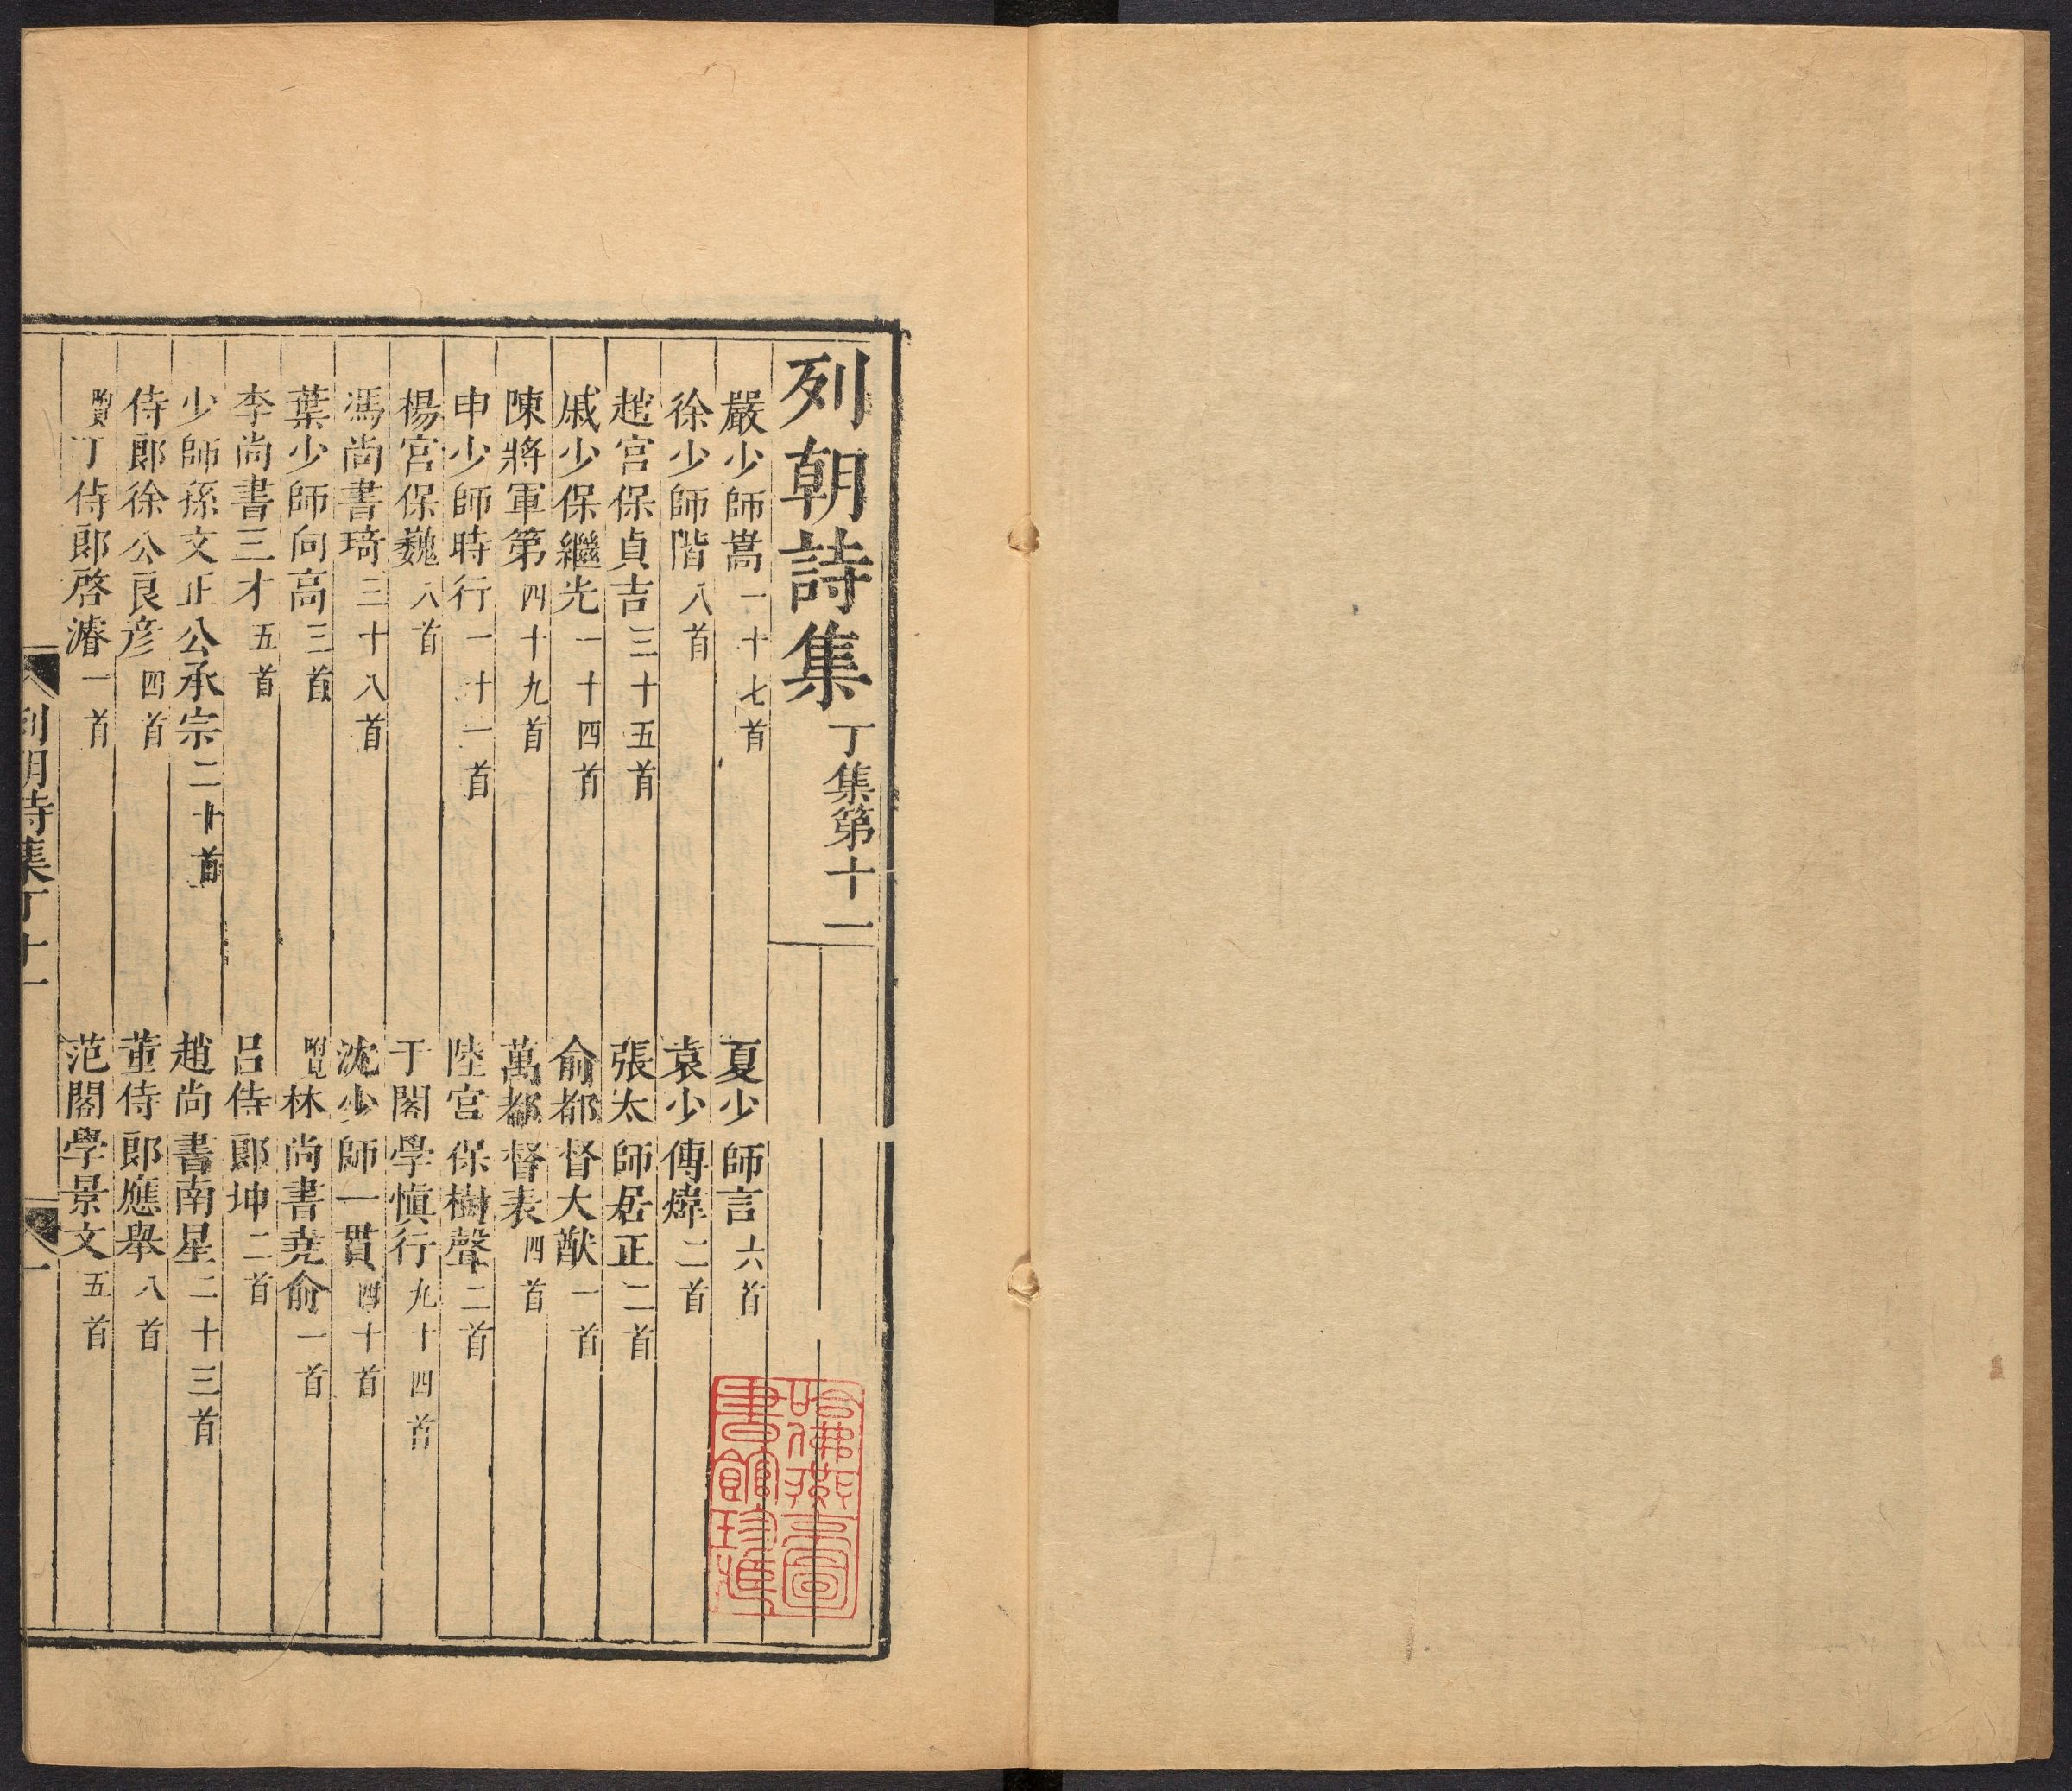 列朝詩集丁集第十一
嚴少師嵩一十七首 夏少師言六首
徐少師階八首 袁少傅煒二首
趙宫保貞吉三十五首 張太師居正二首
戚少保繼光一十四首 俞都督大猷一首
陳將軍第四十九首 萬都督表四首
申少師時行一十一首 陸宫保樹聲二首
楊宫保巍八首 于閣學慎行九十四首
馮尚書琦三十八首 沈少師一貫四十首
葉少師向高三首 附見林尚書堯俞一首
李尚書三才五首 吕侍郎坤二首
少師孫文正公承宗二十首 趙尚書南星二十三首
侍郎徐公良彦四首 董侍郎應舉八首
附見丁侍郎啓濬一首 范閣學景文五首
列朝詩集丁十一 一
哈佛燕京圖書館珍藏